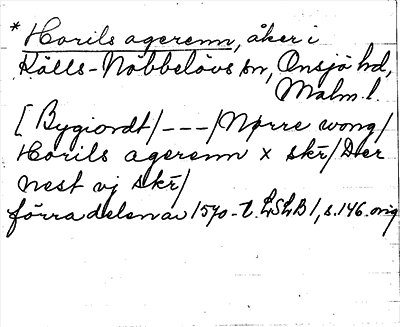 * Horils agerenn, åker i
Källs-Nöbbelövs sn, Onsjö hd,
Malm. l.
[ Bygiordt/---/Nørre wong/
Horils agerenn x skr/ Der
nest vj skr/
förra delen av 1570-t. LSLB 1, s. 146. orig